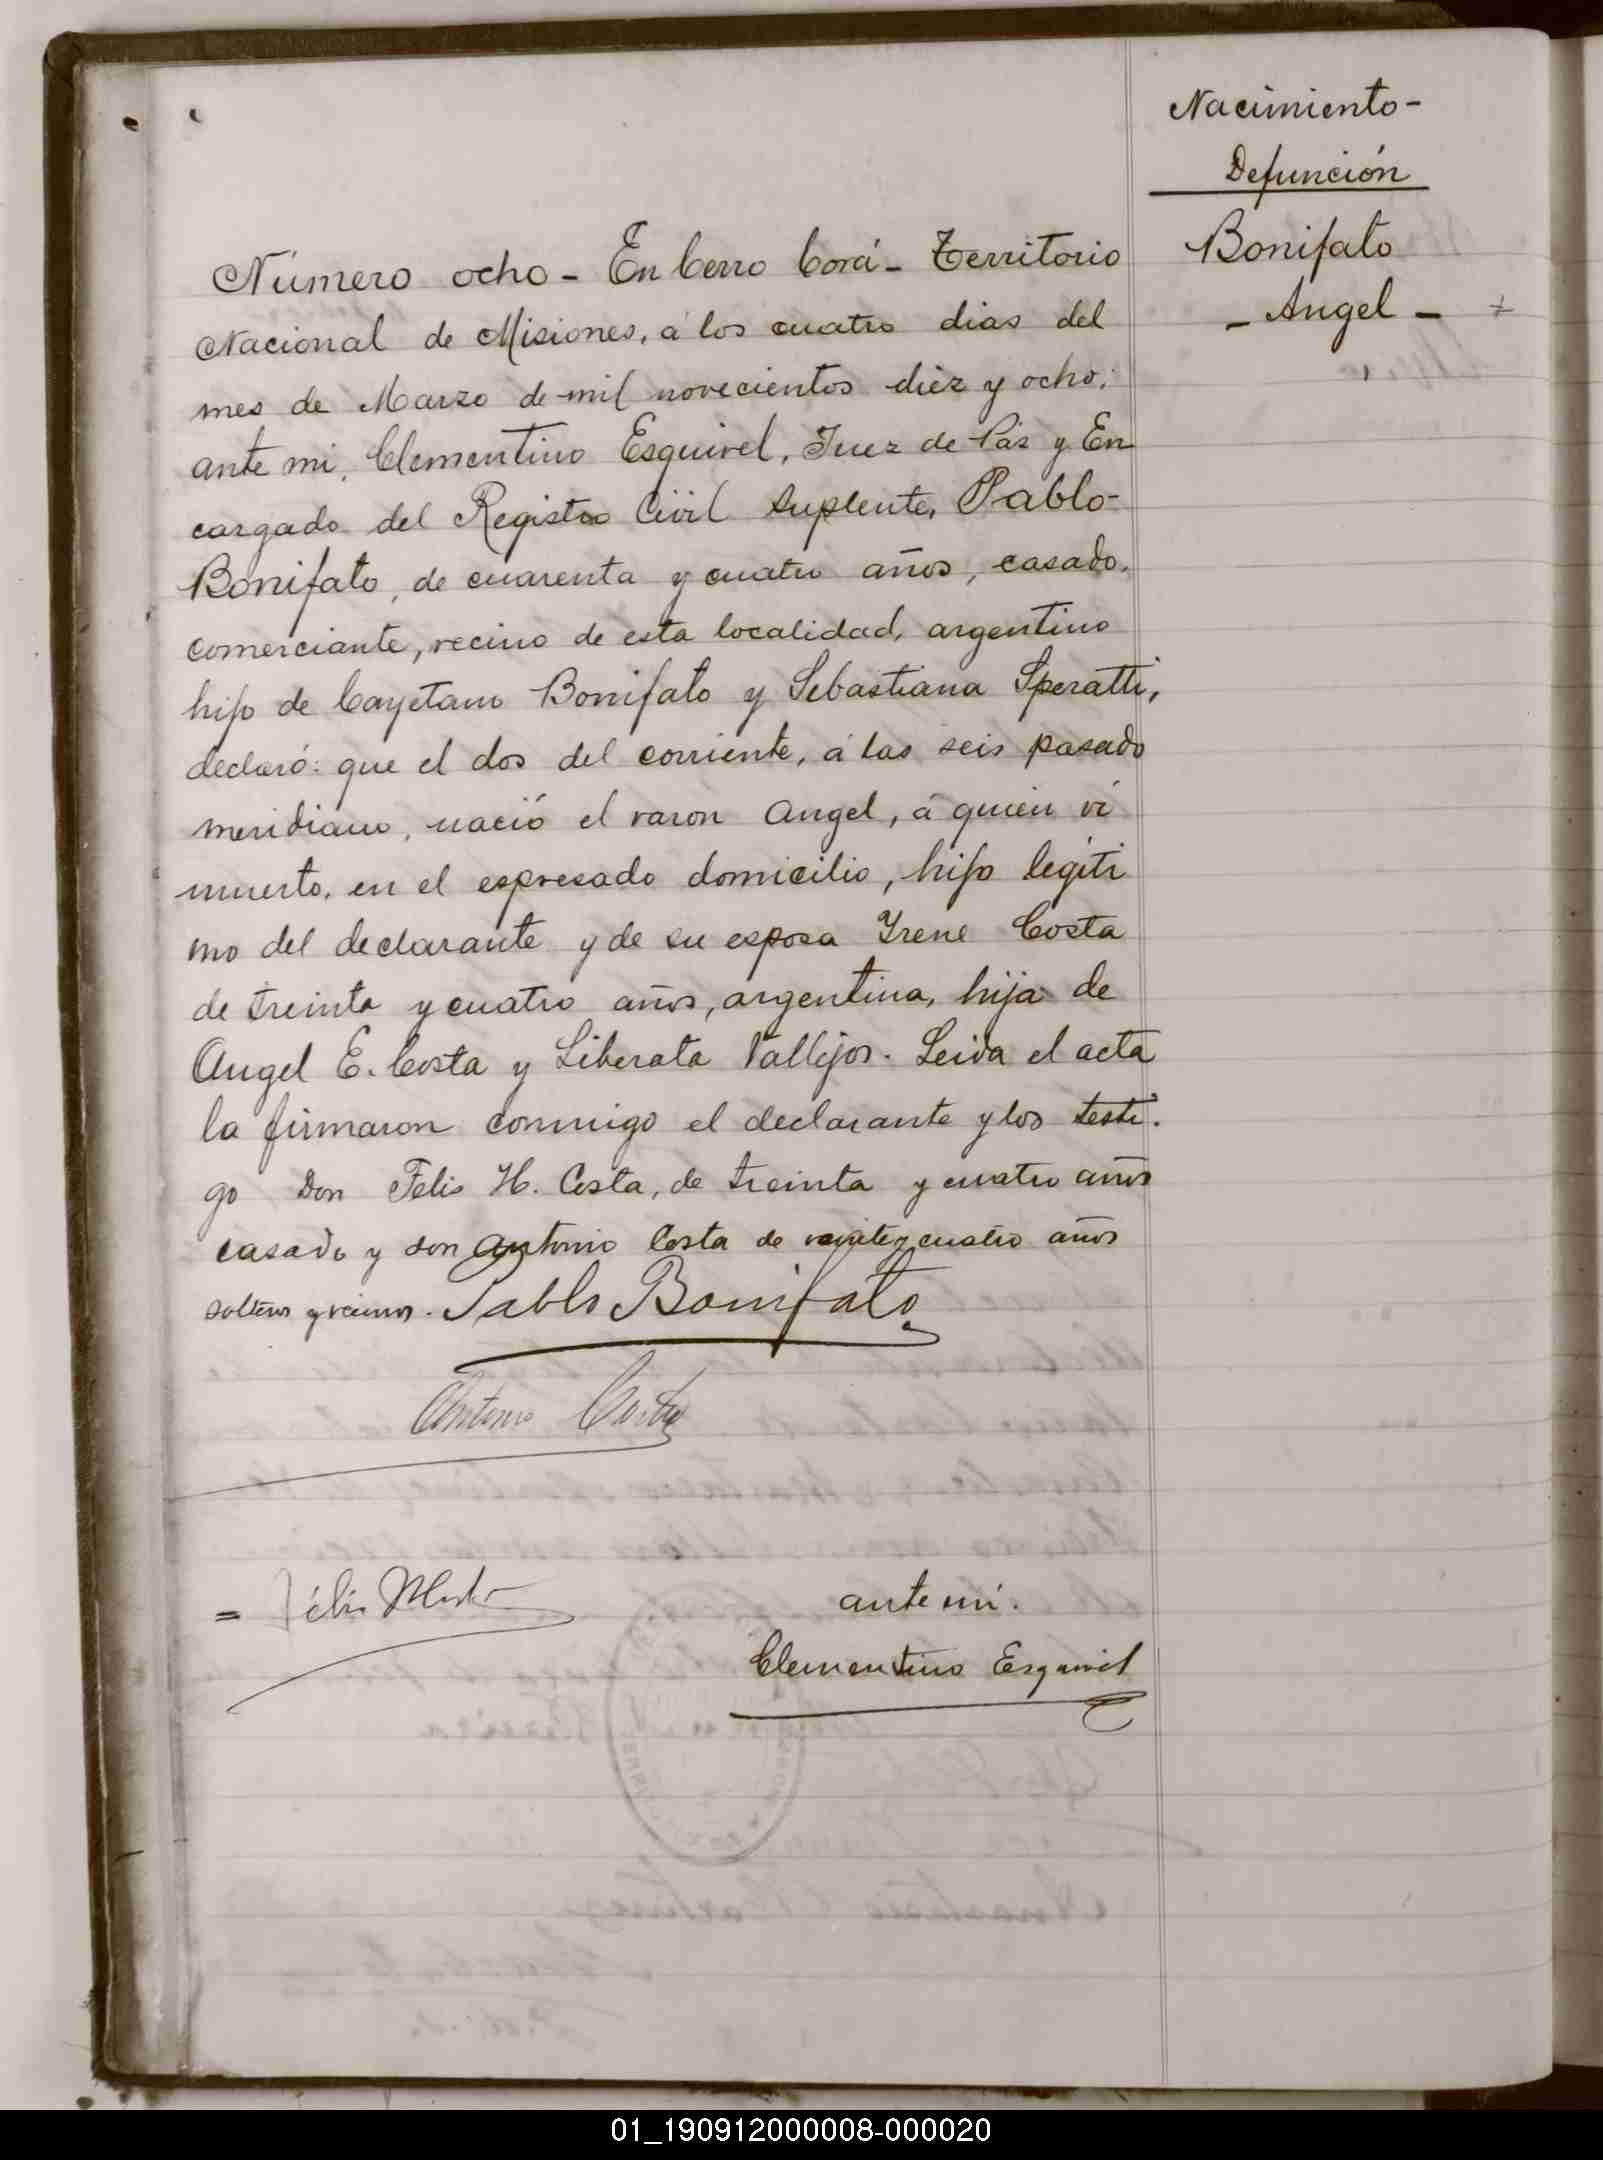 Nacimiento-
Defunción
Bonifato
- Angel -
Número ocho - En Cerro Corá - Territorio
Nacional de Misiones, á los cuatro dias del
mes de Marzo de mil novecientos diez y ocho,
ante mi, Clementino Esquivel, Juez de Páz y En
cargado del Registro Civil Suplente, Pablo-
Bonifato, de cuarenta y cuatro años, casado,
comerciante, vecino de esta localidad, argentino
hijo de Cayetano Bonifato y Sebastiana Speratti,
declaró: que el dos del corriente, á las seis pasado
meridiano, nació el varon Angel, á quien ví
muerto, en el espresado domicilio, hijo legiti
mo del declarante y de su esposa Yrene Costa
de treinta y cuatro años, argentina, hija de
Angel E. Costa y Liberata Vallejos. Leida el acta
la firmaron conmigo el declarante y los testi-
go Don Felis H. Costa, de treinta y cuatro años
casado y don Antonio Costa de veinte y cuatro años
solteros y vecinos. Pablo Bonifato
Antonio Costa
= Félis
ante mi.
Clementino Esquivel
01_190912000008-000020